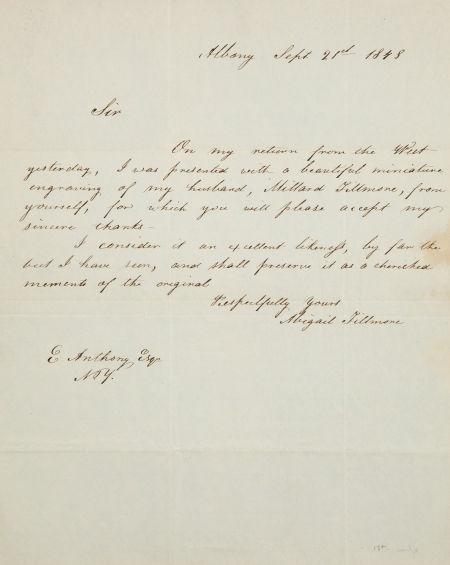 Albany Sept 21st 1848
Sir
On my return from the West
yesterday, I was presented with a beautiful miniature
engraving of my husband, Millard Fillmore, from
yourself, for which you will please accept my
sincere thanks—
I consider it an excellent likeness, by far the
best I have seen, and shall preserve it as a cherished
memento of the original
Respectfully yours
Abigail Fillmore
E Anthony Esqr
N.Y.